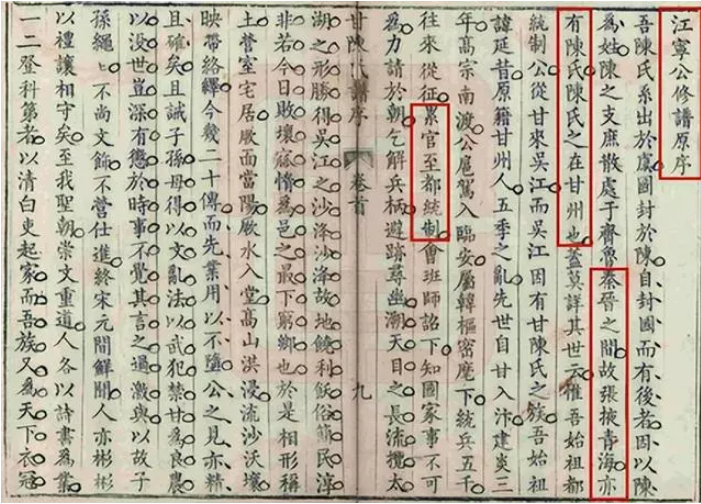 江寧公修譜原序
吾陳氏系出於虞國封於陳自封國而有後者因以陳
為姓陳之支庶散處于齊魯秦晉之間故張掖青海亦
有陳氏陳氏之在甘州也蓋莫詳其世云惟吾始祖都
統制公從甘來吳江而吳江因有甘陳氏之族吾始祖
諱延昔原籍甘州人五季之亂先世自甘入汴建炎三
年高宗南渡公扈駕入臨安屬韓樞密麾下統兵五千
往來從征累官至都統制會班師詔下知國家事不可
為力請於朝乞解兵柄避跡尋幽溯天目之長流攬太
甘陳氏譜序 卷首 九
湖之形勝得吳江之沙洚沙洚故地饒利飫俗簡民淳
非若今日敗壞窳惰為邑之最下窮鄉也於是相形稱
土營室宅居厥面當陽厥水入堂高山洪浸流沙沃壤
映帶絡繹今幾二十傳而先業用以不墮公之見亦精
且確矣且誡子孫毋得以文亂法以武犯禁甘為良農
以没世豈深有懲於時事不覺其言之過激與以故子
孫繩〻不尚文飾不營仕進終宋元間鮮聞人亦彬彬
以禮讓相守矣至我聖朝崇文重道人各以詩書為業
一二登科第者以清白吏起家而吾族又為天下衣冠